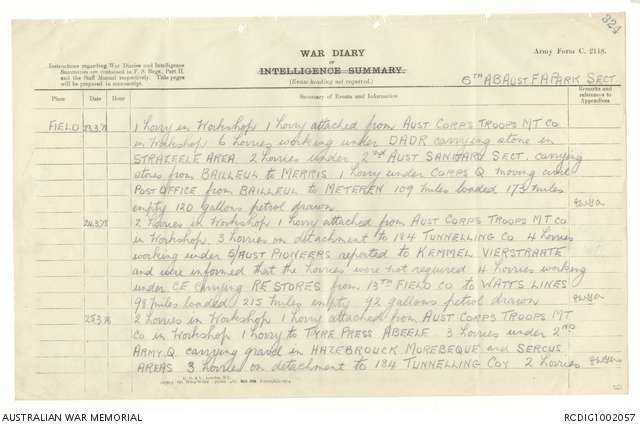 324
WAR DIARY
or
INTELLIGENCE SUMMARY.
(Erase heading not required.)
Army Form C. 2118.
Instructions regarding War Diaries and Intelligence
Summaries are contained in F. S. Regs., Part II.
and the Staff Manual respectively. Title pages
will be prepared in manuscript.
6TH AB AUST FA PARK SECT.
Place
Date
Hour
Summary of Events and Information
Remarks and
references to
Appendices
FIELD 23.3.18 1 lorry in Workshop 1 lorry attached from AUST CORPS TROOPS MT CO
in Workshop 6 lorries working under DADR carrying stone in
STRAZEELE AREA 2 lorries under 2nd AUST SANITARY SECT. carrying
stores from BAILLEUL to MERRIS 1 lorry under CORPS Q moving
POST OFFICE from BAILLEUL to METEREN 109 miles loaded 173 miles
empty 120 gallons petrol drawn.
24.3.18 2 lorries in Workshop 1 lorry attached from AUST CORPS TROOPS MT CO
in Workshop 3 lorries on detachment to 184 TUNNELLING CO 4 lorries
working under 5/AUST PIONEERS reported to KEMMEL VIERSTRAATE
and were informed that the lorries were not required 4 lorries working
under CE carrying RE STORES from 13TH FIELD CO to WATTS LINES
98 miles loaded 215 miles empty 92 gallons petrol drawn
25.3.18 2 lorries in Workshop 1 lorry attached from AUST CORPS TROOPS MT
CO in Workshop 1 lorry to TYRE PRESS ABEELE 3 lorries under 2ND
ARMY Q carrying gravel in HAZEBROUCK MOREBEQUE and SERCUS
AREAS 3 lorries on detachment to 184 TUNNELLING COY 2 lorries
AUSTRALIAN WAR MEMORIAL
RCDIG1002057